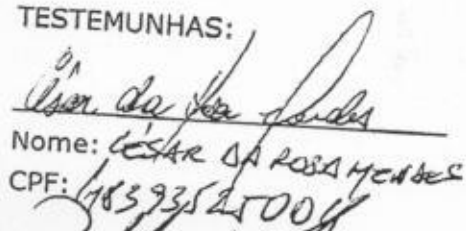 TESTEMUNHAS:
César da Rosa Mendes
Nome: CÉSAR DA ROSA MENDES
CPF: